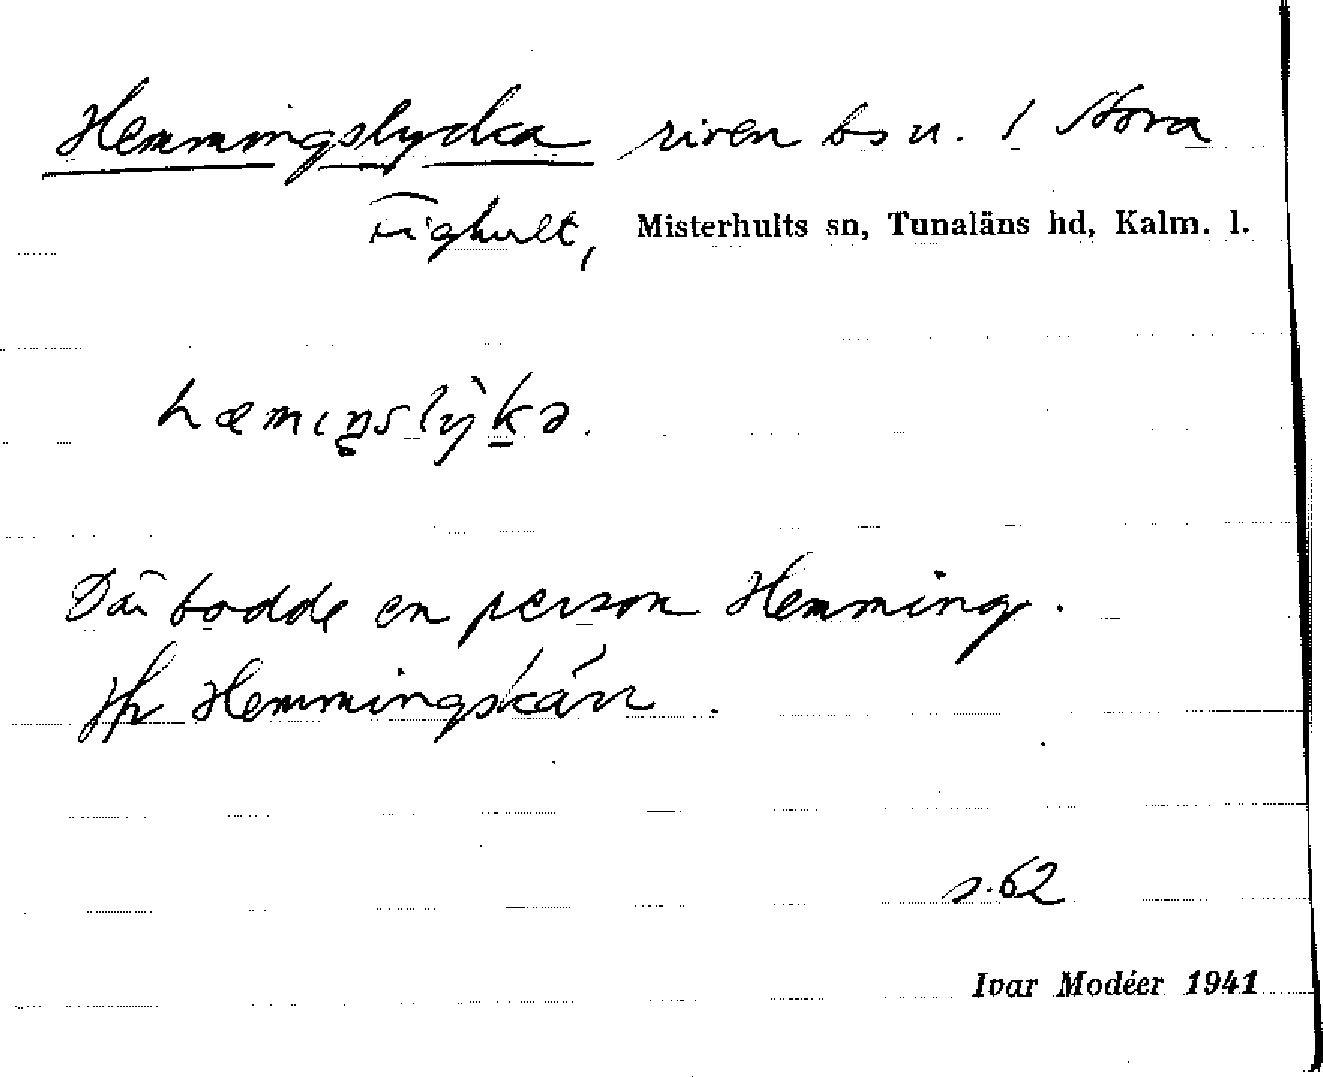 Hemmingslycka riven bs u. 1 Stora
Fighult, Misterhults sn, Tunaläns hd, Kalm. l.
hæmıŋslỳka.
Där bodde en person Hemming.
Jfr Hemmingskärr.
s. 62
Ivar Modéer 1941